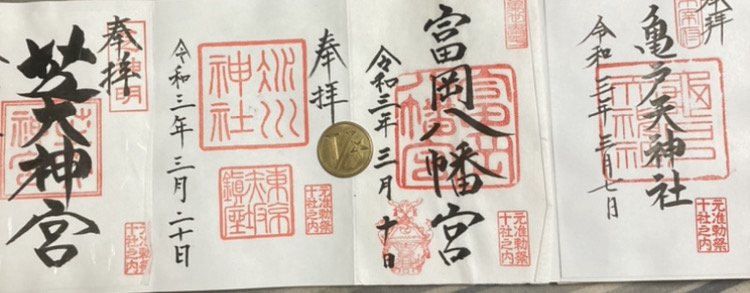 奉拝
亀戸天神社
令和三年三月七日
富岡八幡宮
富岡
八幡宮
令和三年三月十日
元准勅祭
十社之内
奉拝
氷川
神社
東京
赤坂
鎮座
令和三年三月二十日
元准勅祭
十社之内
奉拝
芝大神宮
元准勅祭
十社之内